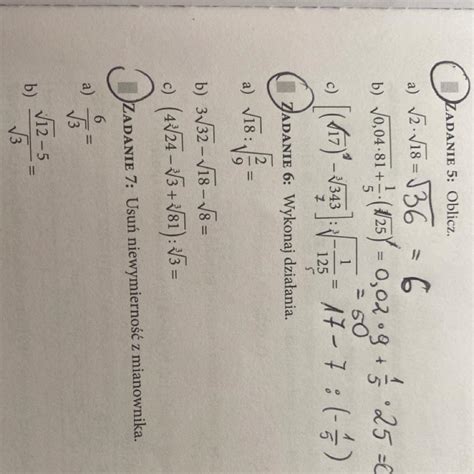 ZADANIE 5: Oblicz.
a) √2·√18 = √36 = 6
b) √(0,04·81) + 1/5·(√25)² = 0,02·9 + 1/5·25 =
c) [(√17)² − ∛343] : ∛(−1/125) = 17 − 7 : (−1/5)
7
5
= 50
ZADANIE 6: Wykonaj działania.
a) √18 : √(2/9) =
b) 3√32 − √18 − √8 =
c) (4∛24 − ∛3 + ∛81) : ∛3 =
ZADANIE 7: Usuń niewymierność z mianownika.
a) 6/√3 =
b) (√12 − 5)/√3 =